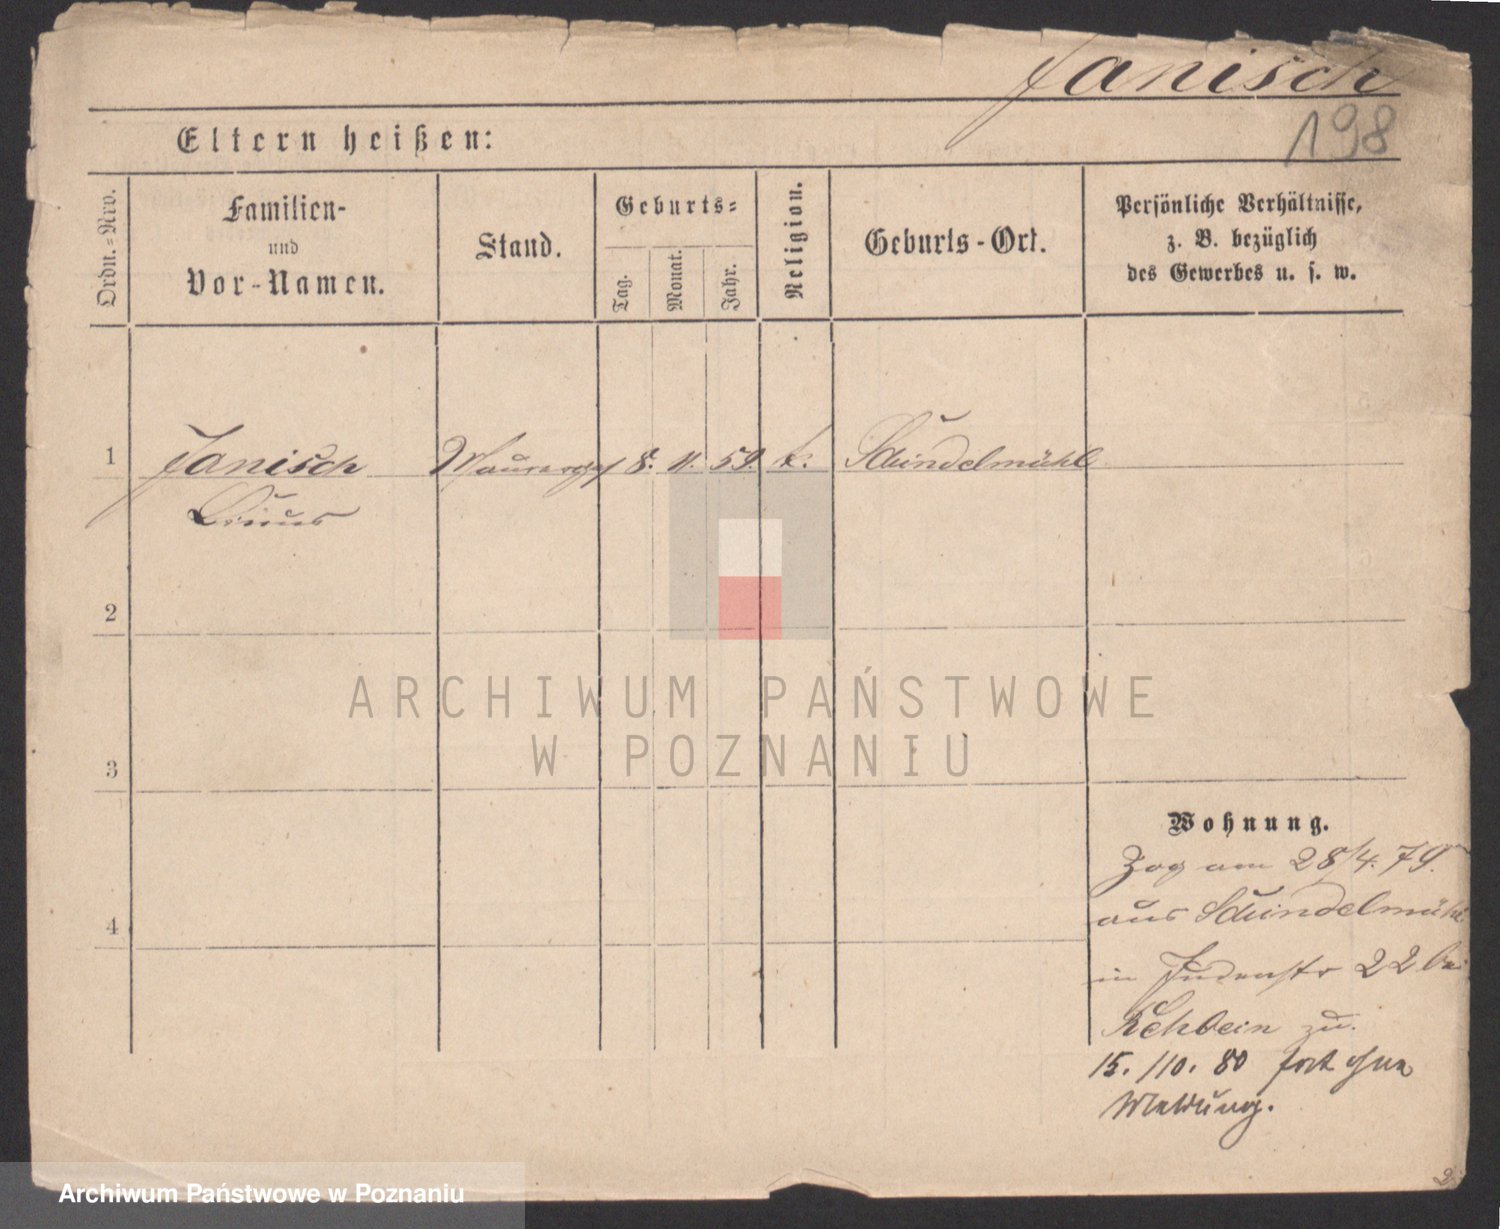 Janisch
198
Eltern heißen:
Ordn.=Nro.
Familien-
und
Vor-Namen.
Stand.
Geburts=
Tag.
Monat.
Jahr.
Religion.
Geburts-Ort.
Persönliche Verhältnisse,
z. B. bezüglich
des Gewerbes u. s. w.
1 Janisch Maurerges 8. 11. 59. k. Schindelmühl
2
ARCHIWUM PAŃSTWOWE
W POZNANIU
3
Wohnung.
Zog am 28/4. 79.
aus Schindelmühl
4
in Judenstr 22 bei
Rehbein zu.
15./10. 80 fort ohne
Meldung.
Archiwum Państwowe w Poznaniu